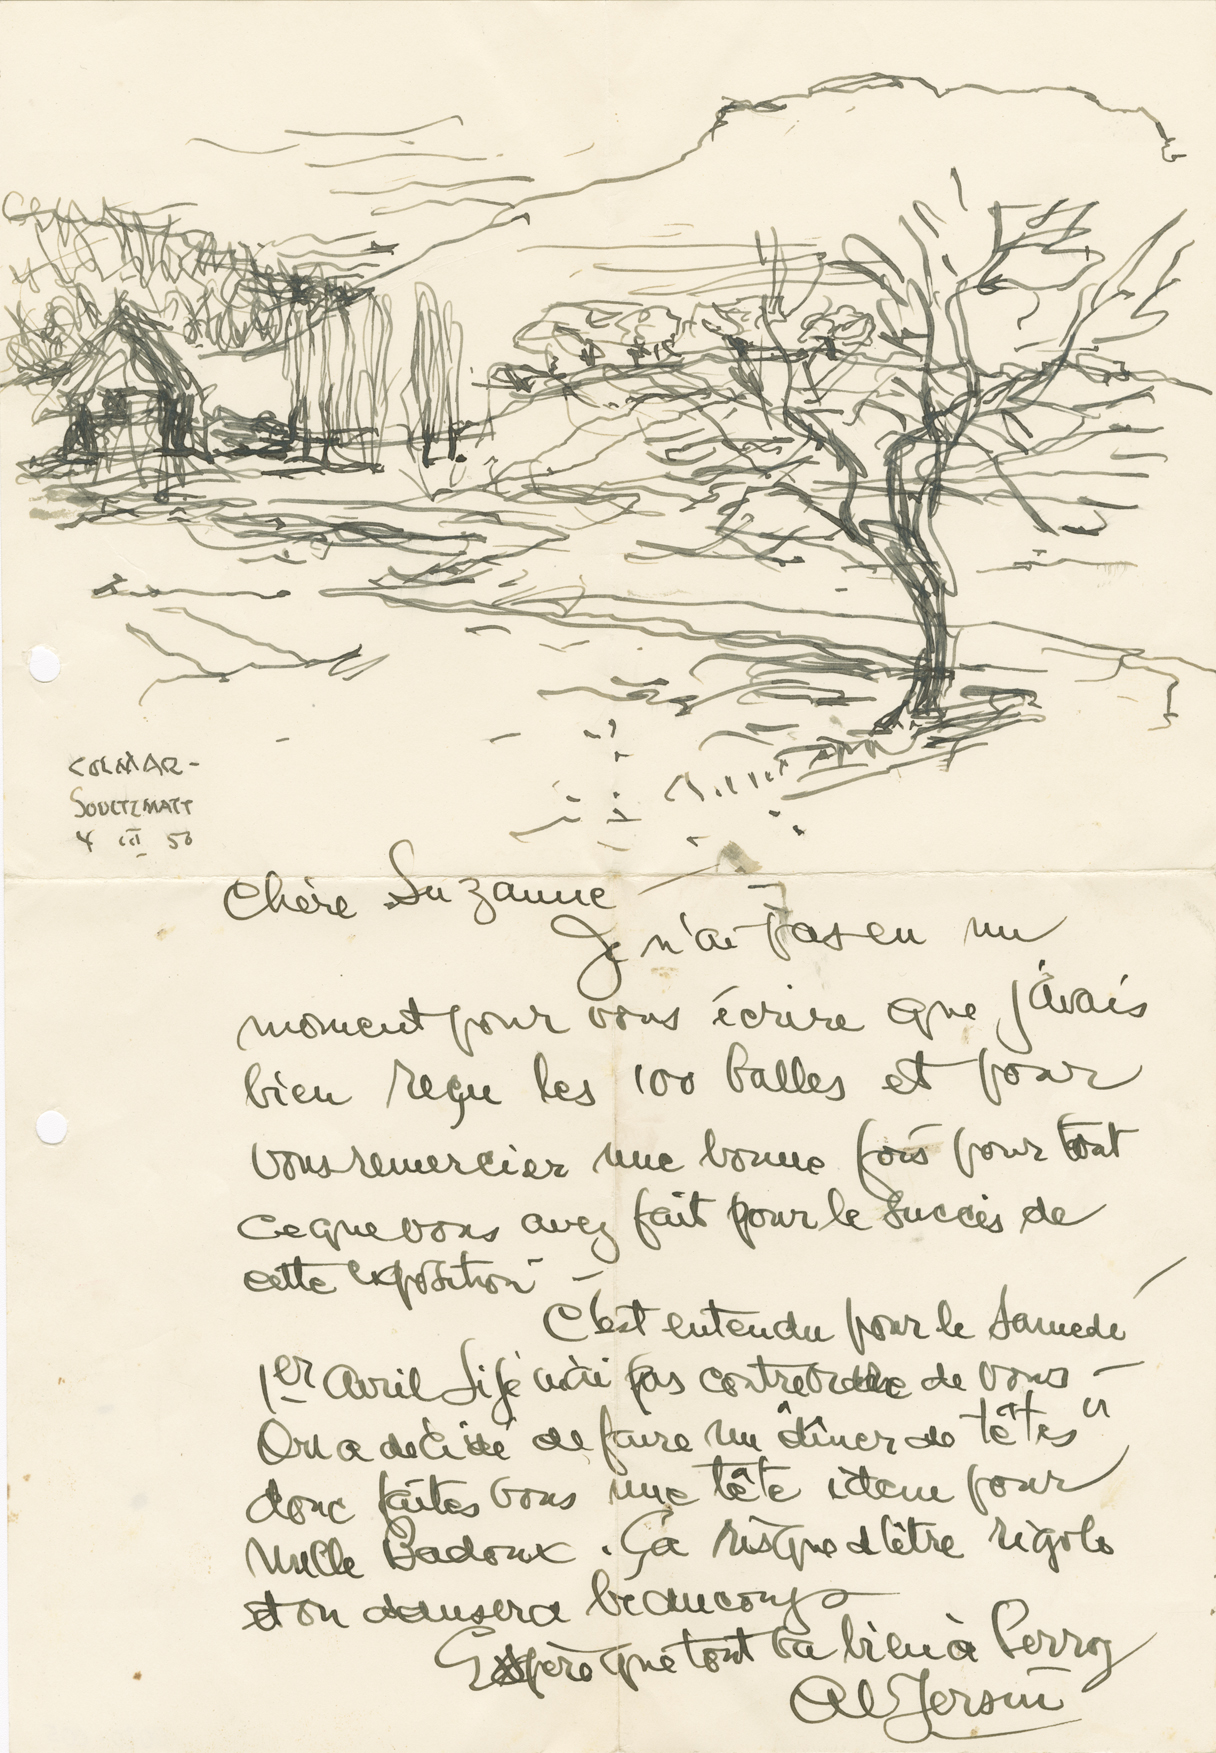 COLMAR-
SOULTZMATT
4 III 50
Chère Suzanne
Je n'ai pas eu un
moment pour vous écrire que j'avais
bien reçu les 100 balles et pour
vous remercier une bonne fois pour tout
ce que vous avez fait pour le succès de
cette exposition –
C'est entendu pour le samedi
1er Avril si je n'ai pas contreordre de vous –
On a décidé de faire un "dîner de têtes"
donc faites vous une tête idem pour
Mlle Badoux. Ça risque d'être rigolo
et on dansera beaucoup
Espère que tout va bien à Perroy
Al Yersin